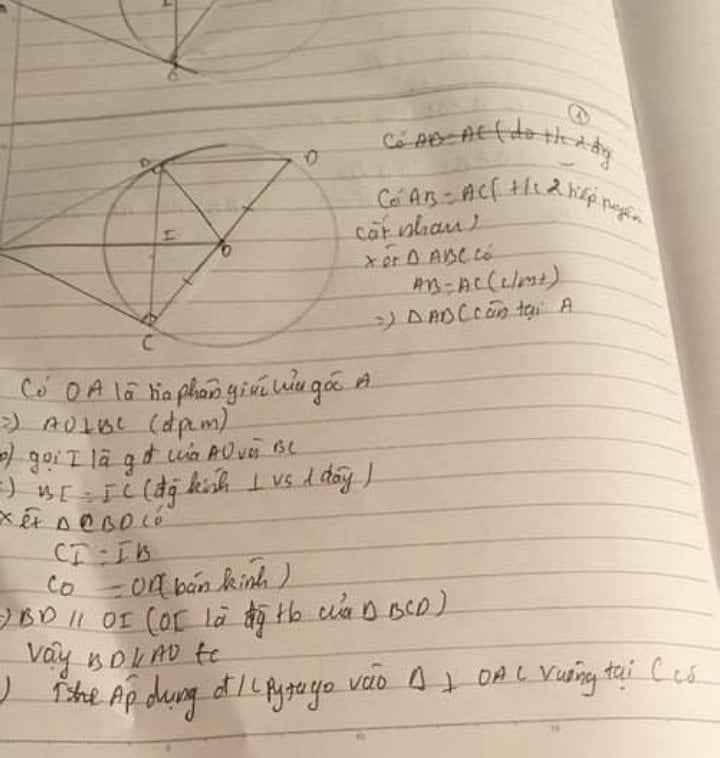 C
B
D
I
O
C
①
Có AB = AC (do t/c 2 đg
Có AB = AC ( t/c 2 tiếp tuyến
cắt nhau)
xét Δ ABC có
AB = AC (c/mt)
=) Δ ABC cân tại A
Có OA là tia phân giác của góc A
=) AO ⊥ BC (đpcm)
b) gọi I là gđ của AO với BC
=) BI = IC (đg kính ⊥ vs 1 dây)
xét Δ CBD có
CI = IB
CO = OD (bán kính)
=) BD // OI (OI là đg tb của Δ BCD)
Vậy BD // AO
) Áp dụng đ/l Pytago vào Δ ⊥ OAC vuông tại C có